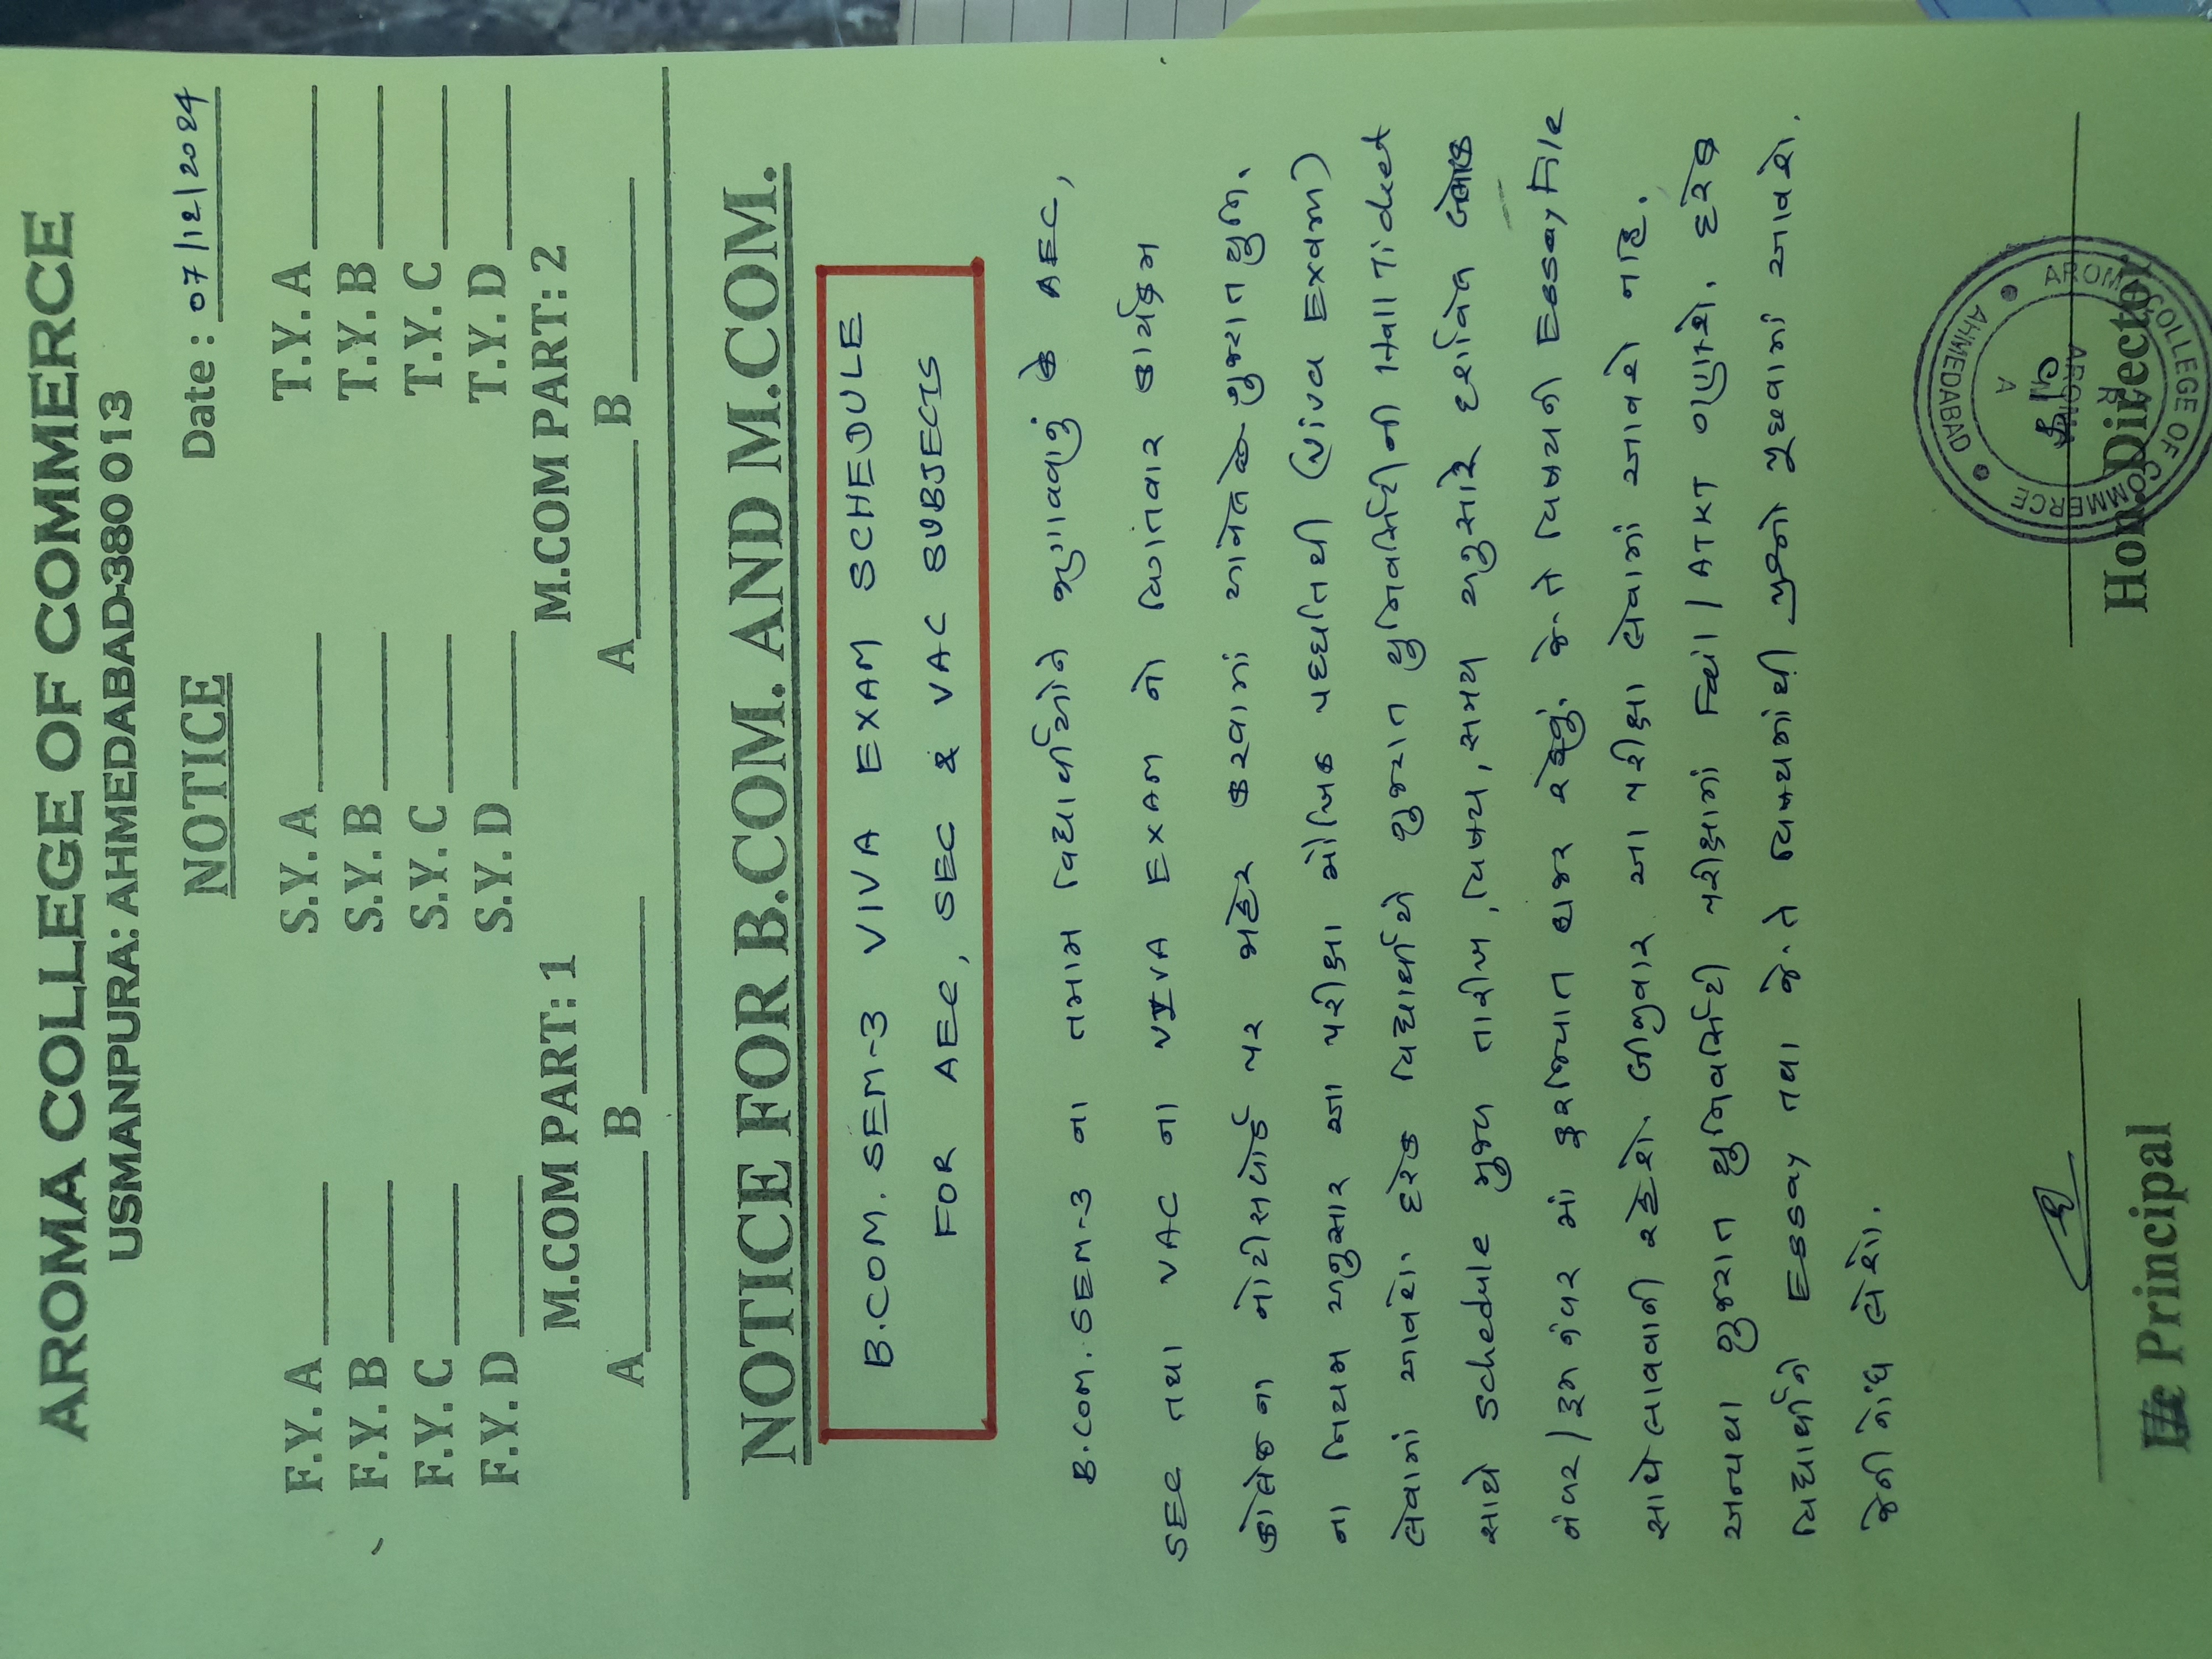 AROMA COLLEGE OF COMMERCE
USMANPURA: AHMEDABAD-380 013
NOTICE Date : 07/12/2024
F.Y. A S.Y. A T.Y. A
F.Y. B S.Y. B T.Y. B
F.Y. C S.Y. C T.Y. C
F.Y. D S.Y. D T.Y. D
M.COM PART: 1 M.COM PART: 2
A B A B
NOTICE FOR B.COM. AND M.COM.
B.COM. SEM-3 VIVA EXAM SCHEDULE
FOR AEC, SEC & VAC SUBJECTS
B.COM. SEM-3 ના તમામ વિદ્યાર્થીઓને જણાવવાનું કે AEC,
SEC તથા VAC ના VIVA EXAM નો વિગતવાર કાર્યક્રમ
કોલેજ ના નોટીસબોર્ડ પર જાહેર કરવામાં આવેલ છે ગુજરાત યુનિ.
ના નિયમ અનુસાર આ પરીક્ષા મૌખિક પદ્ધતિથી (Viva Exam)
લેવામાં આવશે. દરેક વિદ્યાર્થીએ ગુજરાત યુનિવર્સિટીની Hall Ticket
સાથે Schedule મુજબ તારીખ, વિષય, સમય અનુસાર દર્શાવેલ બ્લોક
નંબર/રૂમ નંબર માં ફરજિયાત હાજર રહેવું. જે-તે વિષયની Essay File
સાથે લાવવાની રહેશે. બીજીવાર આ પરીક્ષા લેવામાં આવશે નહિ.
અન્યથા ગુજરાત યુનિવર્સિટી પરીક્ષામાં Fail / ATKT ગણાશે. દરેક
વિદ્યાર્થીને Essay તથા જે-તે વિષયમાંથી પ્રશ્નો પૂછવામાં આવશે.
જેની નોંધ લેશો.
AROMA COLLEGE OF COMMERCE
AHMEDABAD
Principal Hon. Director